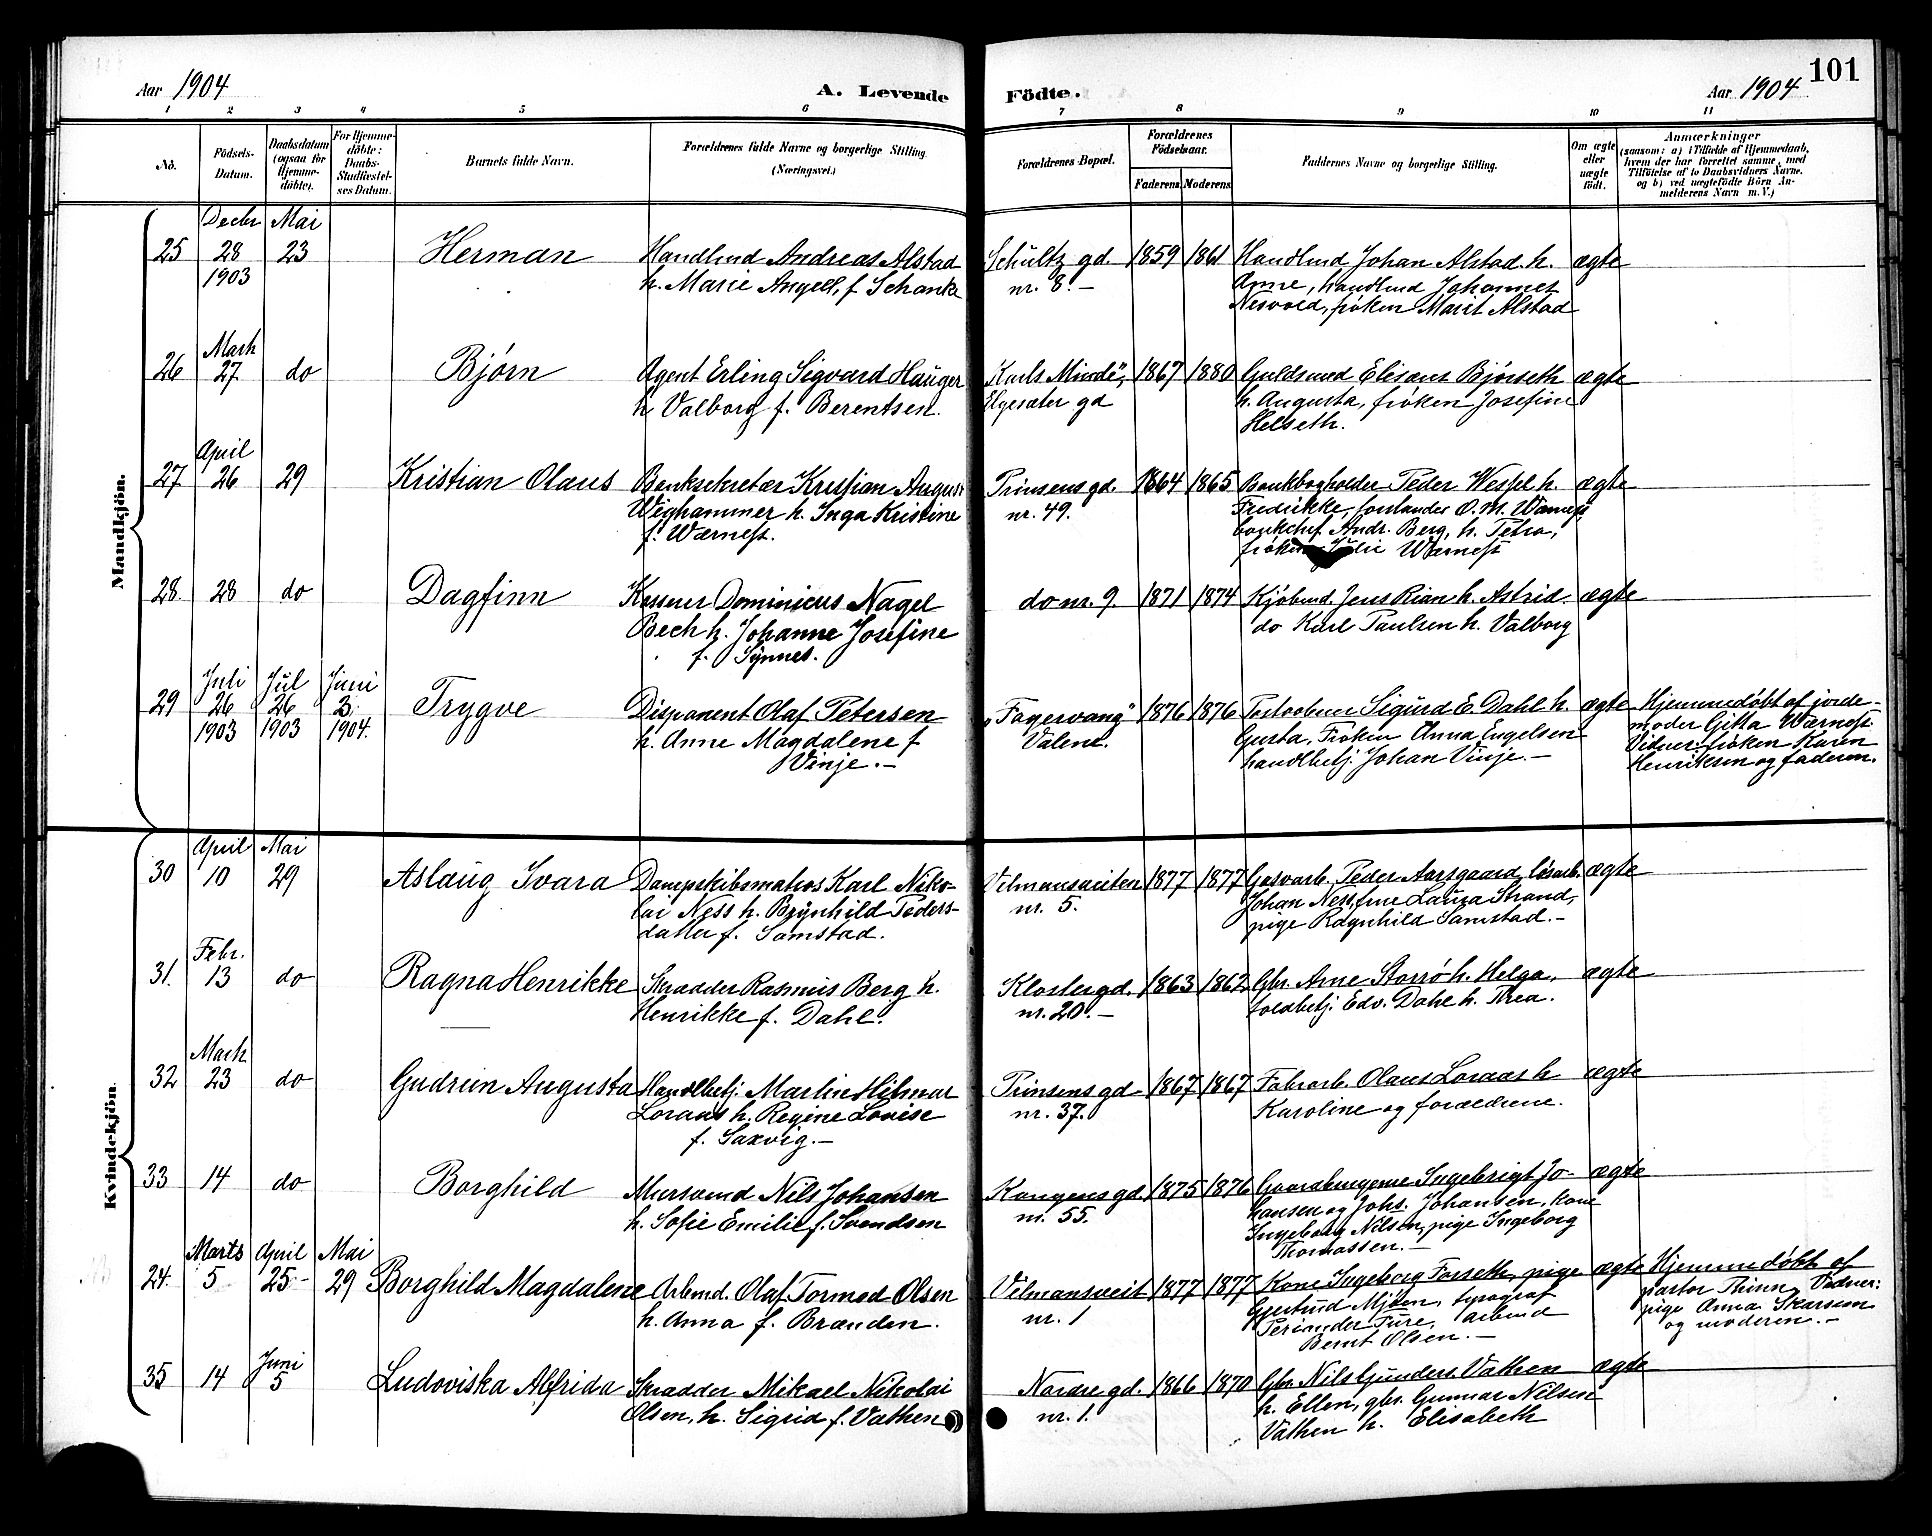 101
Aar 1904
A. Levende
Födte.
Aar 1904
1 2 3 4 5 6 7 8 9 10 11
No.
Födsels-
Datum.
Daabsdatum
(ogsaa for
Hjemme-
döbte).
For Hjemme-
döbte:
Daabs-
Stadfæstel-
ses Datum.
Barnets fulde Navn.
Forældrenes fulde Navne og borgerlige Stilling.
(Næringsvei.)
Forældrenes Bopæl.
Forældrenes
Födselsaar.
Faderens. Moderens.
Faddernes Navne og borgerlige Stilling.
Om ægte
eller
uægte
født.
Anmærkninger
(saasom: a) i Tilfælde af Hjemmedaab,
hvem der har forrettet samme, med
Tilføielse af to Daabsvidners Navne.
og b) ved uægtefödte Börn An-
melderens Navn m. V.)
Mandkjön.
25
Decbr
28
1903
Mai
23
Herman
Handlmd Andreas Alstad
h. Marie Angell, f Schanke
Schultz gd.
nr. 8. -
1859 1861
Handlmd Johan Alstad h.
Anne, handlmd Johannes
Nesvold, frøken Marit Alstad
ægte
26
Marts
27
do
Bjørn
Agent Erling Sigvard Hauger
h Valborg f. Berentsen.
"Karls Minde",
Elgesæter gd
1867 1880
Guldsmed Elisæus Bjørseth
h. Augusta, frøken Josefine
Helseth.
ægte
27
April
26
29
Kristian Olaus
Banksekretær Kristian August
Weghammer h. Inga Kristine
f. Værness.
Prinsens gd.
nr. 49.
1864 1865
Bankbogholder Peder Wessel h.
Fredrikke, forstander O. M. Værness,
bankchef Andr. Berg, h. Petra,
frøken Julie Værness
ægte
28
28
do
Dagfinn
Kasserer Dominicus Nagel
Bech h. Johanne Josefine
f. Synnes.
do nr. 9.
1871 1874
Kjøbmd. Jens Rian h. Astrid.
do Karl Paulsen h. Valborg
ægte
29
Juli
26
1903
Jul
26
1903
Juni
3
1904.
Trygve
Disponent Olaf Petersen
h. Anne Magdalene f
Vinje. -
"Fagervang"
Valene.
1876 1876
Postaabner Sigurd E. Dahl h.
Gusta, Frøken Anna Engelsen
handlbetj. Johan Vinje. -
ægte
Hjemmedøbt af jorde-
moder Gitta Værness.
Vidner: frøken Karen
Henriksen og faderen.
Kvindekjön.
30
April
10
Mai
29
Aslaug Svara
Dampskibsmatros Karl Niko-
lai Ness h. Brynhild Peders-
datter f. Samstad.
Vilmansveiten
nr. 5.
1877 1877
Gasvarb. Peder Aarsgaard, løsarb.
Johan Ness, frue Laura Strand,
pige Ragnhild Samstad. -
ægte
31.
Febr.
13
do
Ragna Henrikke
Skrædder Rasmus Berg h.
Henrikke f. Dahl.
Kloster gd.
nr. 20. -
1863 1862
Gbr. Arne Storrø h. Helga,
toldbetj. Edv. Dahl h. Thea.
ægte
32
Marts
23
do
Gudrun Augusta
Handlbetj. Martin Hilmar
Loraas h. Regine Lovise
f. Saxvig. -
Prinsens gd
nr. 37.
1867 1867
Fabrarb. Olaus Loraas h
Karoline og forældrene.
ægte
33
14
do
Borghild
Mursvend Nils Johansen
h. Sofie Emilie f. Svendsen
Kongens gd
nr. 55.
1875 1876
Gaardbrugerne Ingebrigt Jo-
hansen og Johs. Johansen, kone
Ingeborg Nilsen, pige Ingeborg
Thomassen. -
ægte
24.
Marts
5
April
25
Mai
29
Borghild Magdalene
Arbmd. Olaf Tormod Olsen
h. Anna f. Brænden.
Vilmansveit
nr. 1
1877 1877
Kone Ingeborg Forseth, pige
Gjertrud Mjøen, typograf
Periander Ture, arbmd
Bernt Olsen. -
ægte
Hjemmedøbt af
pastor Thinn. Vidner:
pige Anna Skarsem
og moderen. -
35
14
Juni
5
Ludoviska Alfrida
Skrædder Mikael Nikolai
Olsen, h. Sigrid f. Vathen
Nordre gd.
nr. 1.
1866 1870
Gbr. Nils Gunders. Vathen
h. Ellen, gbr. Gunnar Nilsen
Vathen h. Elisabeth
ægte